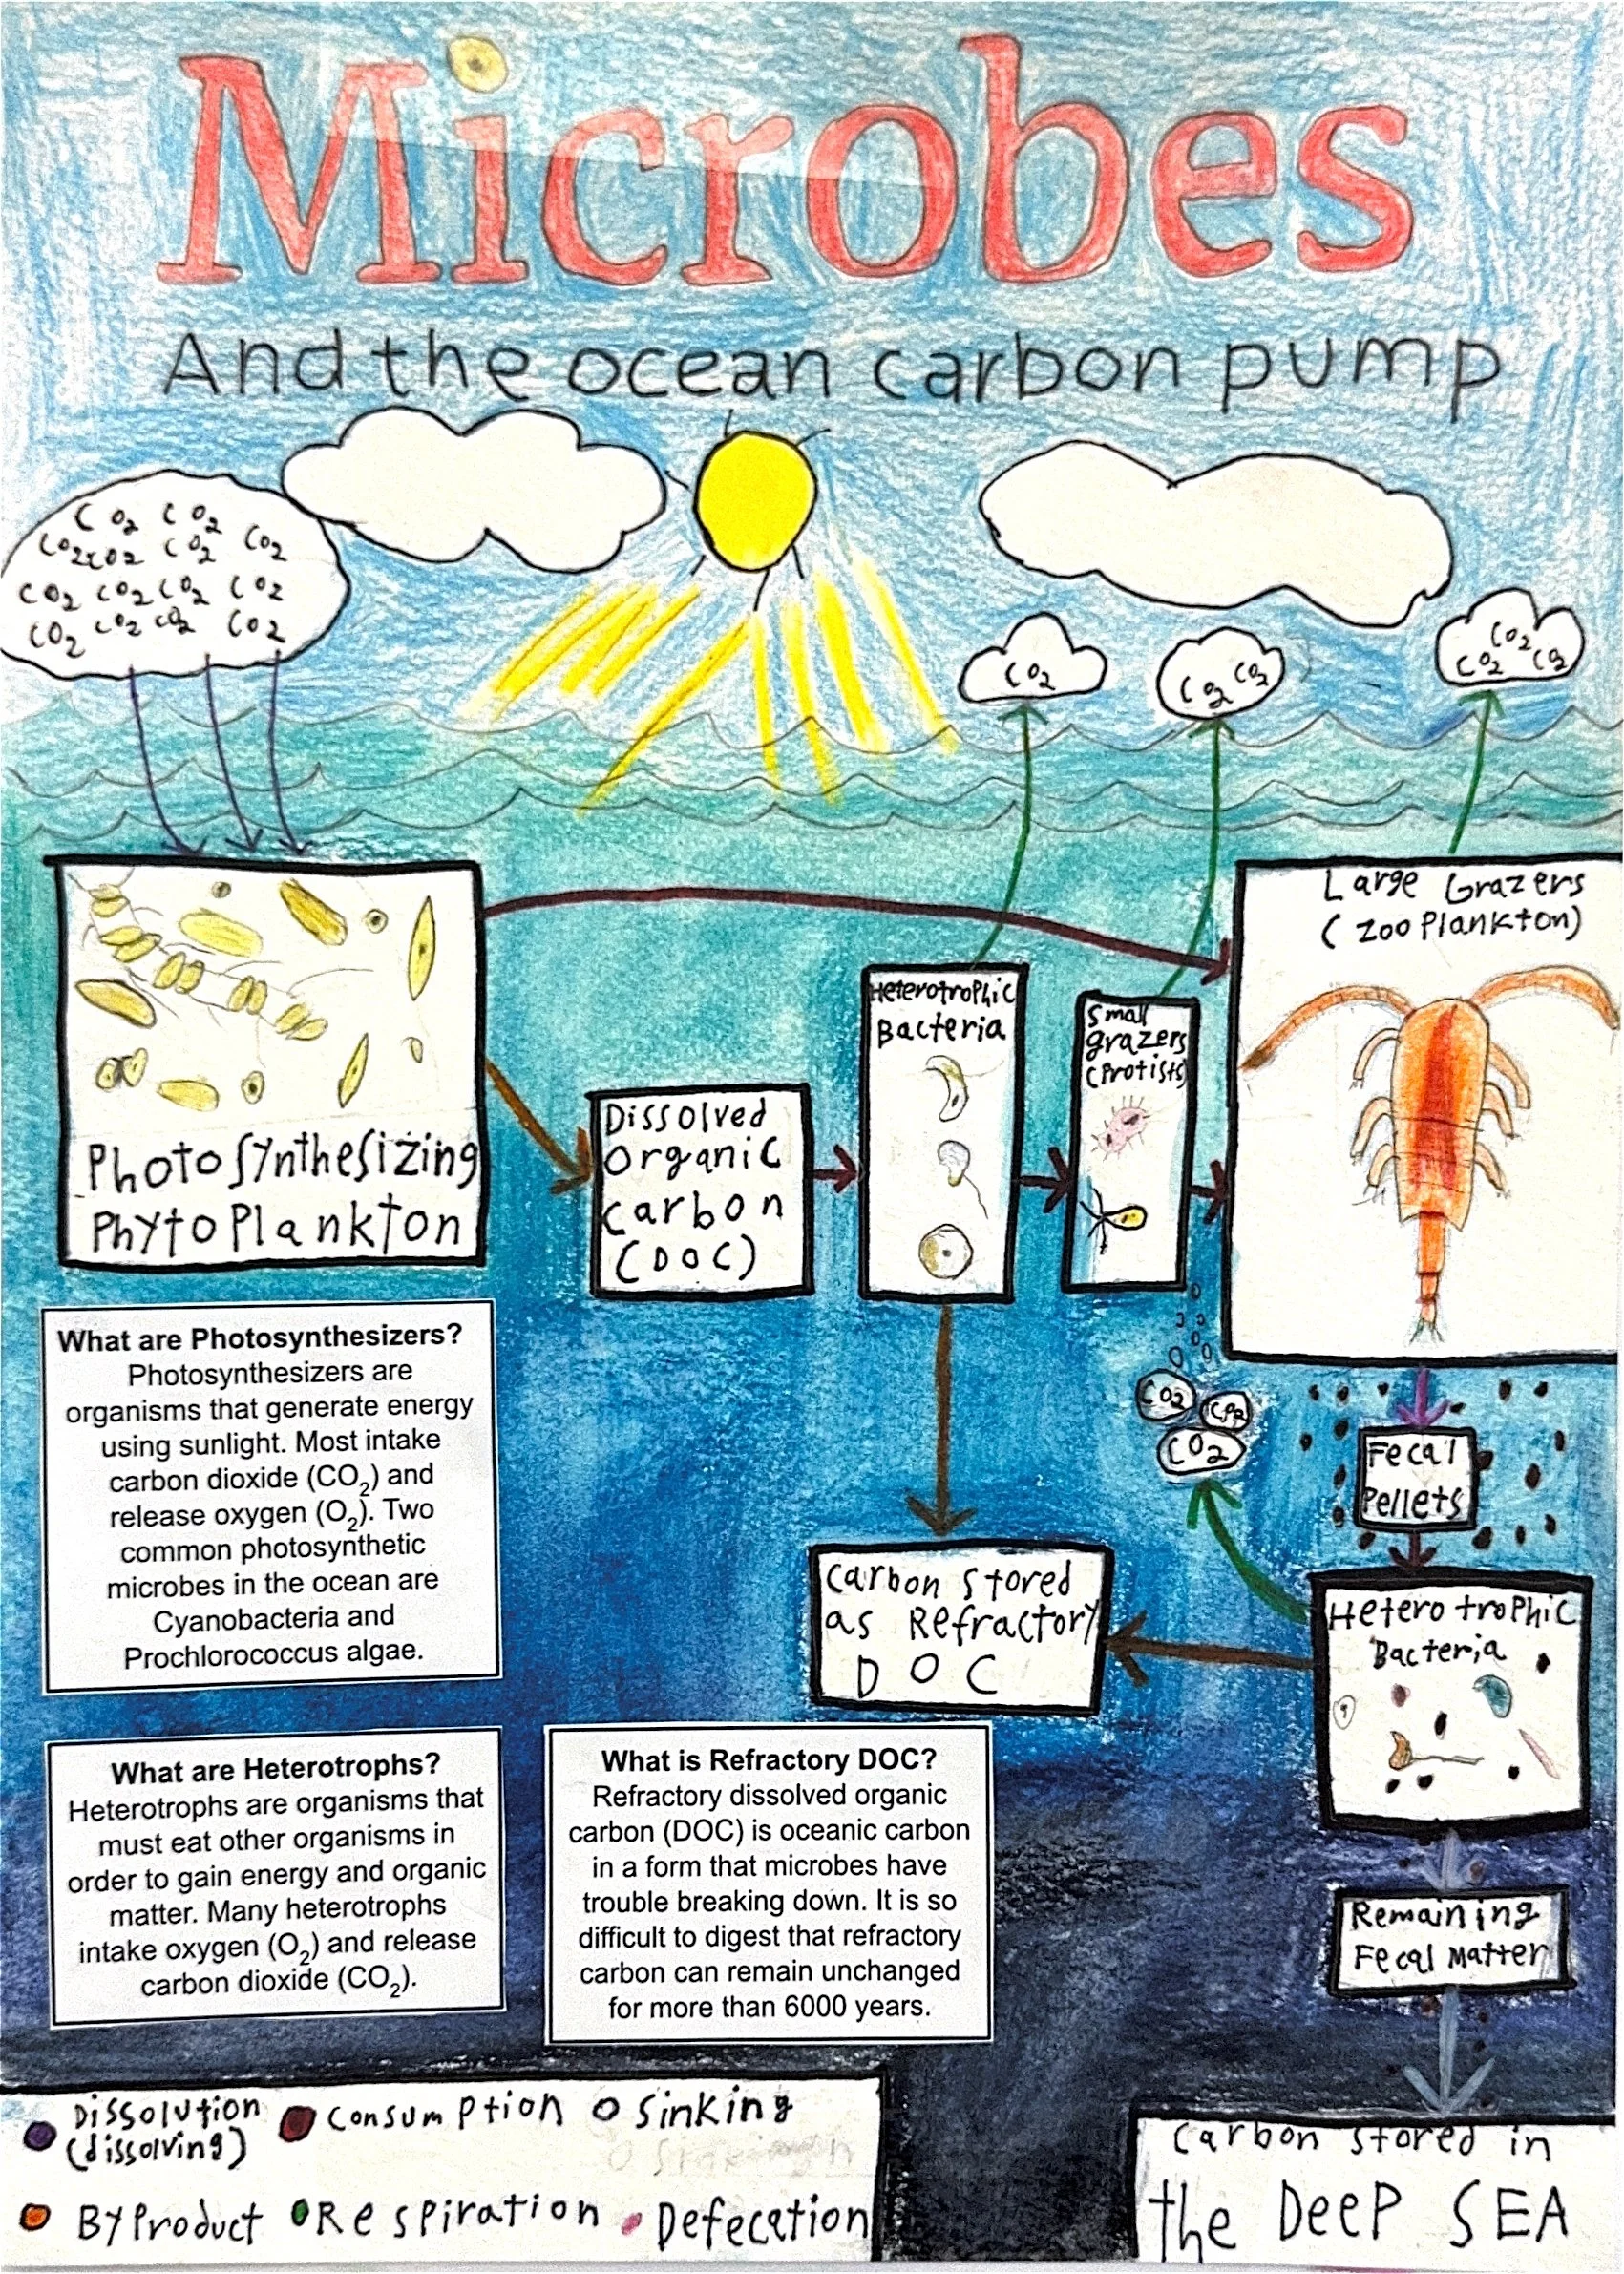 Microbes
And the ocean carbon pump
CO2 CO2
CO2 CO2 CO2 CO2
CO2 CO2 CO2 CO2
CO2 CO2 CO2 CO2
CO2
CO2 CO2
CO2
CO2 CO2
Photosynthesizing
Phytoplankton
Dissolved
Organic
carbon
(DOC)
Heterotrophic
Bacteria
Small
grazers
(Protists)
Large Grazers
(Zooplankton)
What are Photosynthesizers?
Photosynthesizers are
organisms that generate energy
using sunlight. Most intake
carbon dioxide (CO2) and
release oxygen (O2). Two
common photosynthetic
microbes in the ocean are
Cyanobacteria and
Prochlorococcus algae.
CO2
CO2
Fecal
Pellets
Carbon stored
as Refractory
DOC
Heterotrophic
Bacteria
What are Heterotrophs?
Heterotrophs are organisms that
must eat other organisms in
order to gain energy and organic
matter. Many heterotrophs
intake oxygen (O2) and release
carbon dioxide (CO2).
What is Refractory DOC?
Refractory dissolved organic
carbon (DOC) is oceanic carbon
in a form that microbes have
trouble breaking down. It is so
difficult to digest that refractory
carbon can remain unchanged
for more than 6000 years.
Remaining
Fecal Matter
Dissolution
(dissolving)
Consumption
Sinking
Byproduct
Respiration
Defecation
Carbon stored in
the Deep SEA